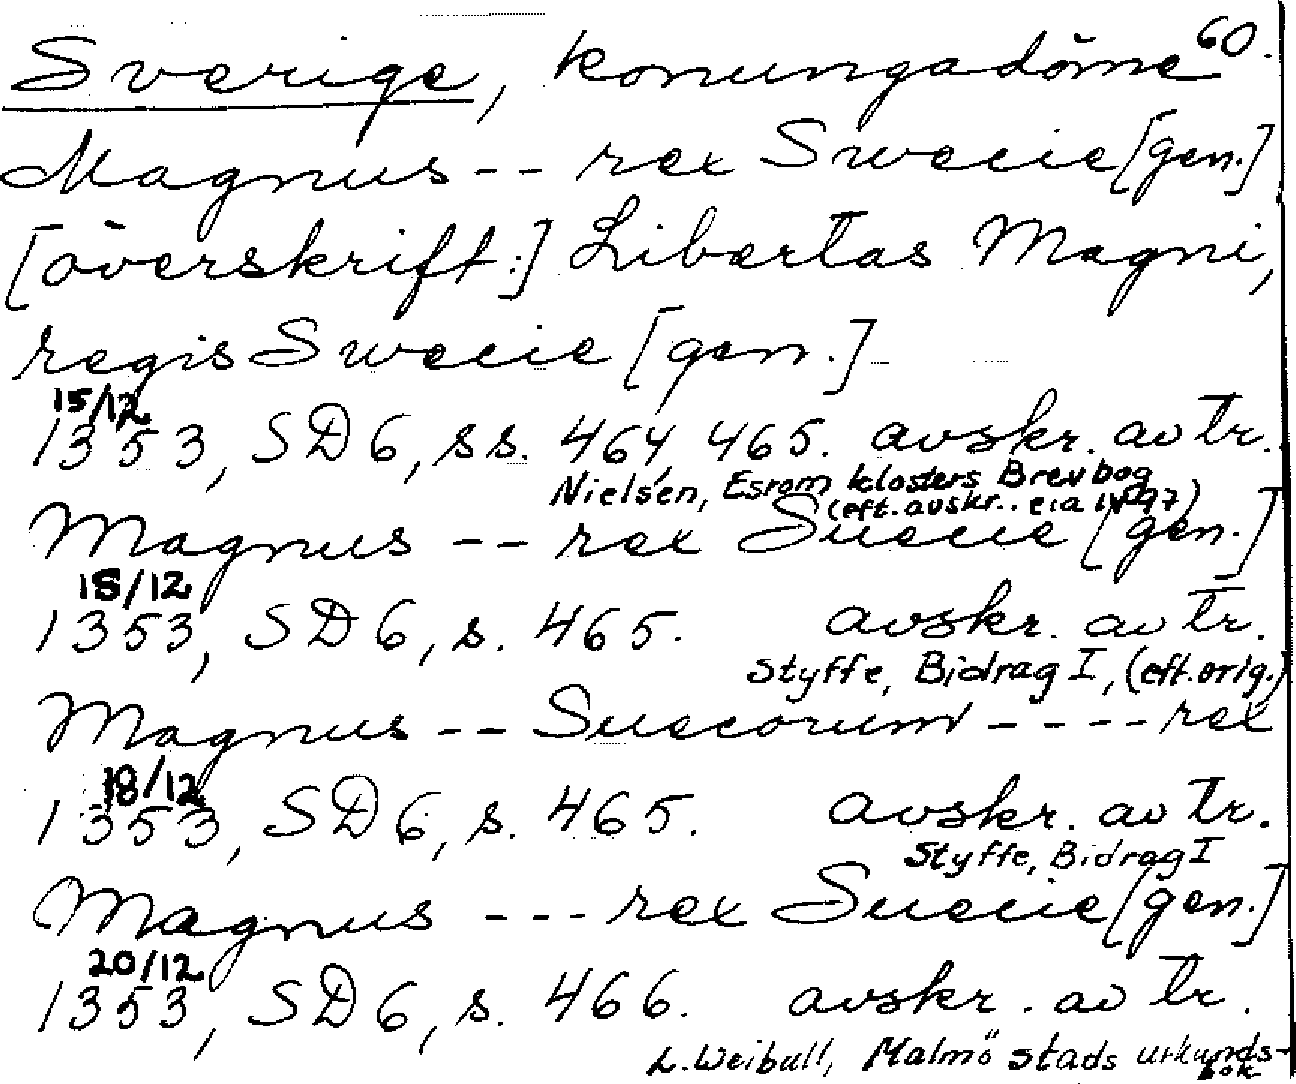 60.
Sverige, konungadöme
Magnus -- rex Sweeie [gen.]
[överskrift:] Libertas Magni,
regis Sweeie [gen.]
15/12
1353, SD 6, ss. 464, 465. avskr. av tr.
Nielsen, Esrom klosters Brevbog
(eft. avskr.. c:a 1497)
Magnus -- rex Suecie [gen.]
18/12
1353, SD 6, s. 465. avskr. av tr.
Styffe, Bidrag I, (eft. orig.)
Magnus -- Suecorum ---- rex
18/12
1353, SD 6, s. 465. avskr. av tr.
Styffe, Bidrag I
Magnus --- rex Suecie [gen.]
20/12
1353, SD 6, s. 466. avskr. av tr.
L. Weibull, Malmö stads urkunds-
bok